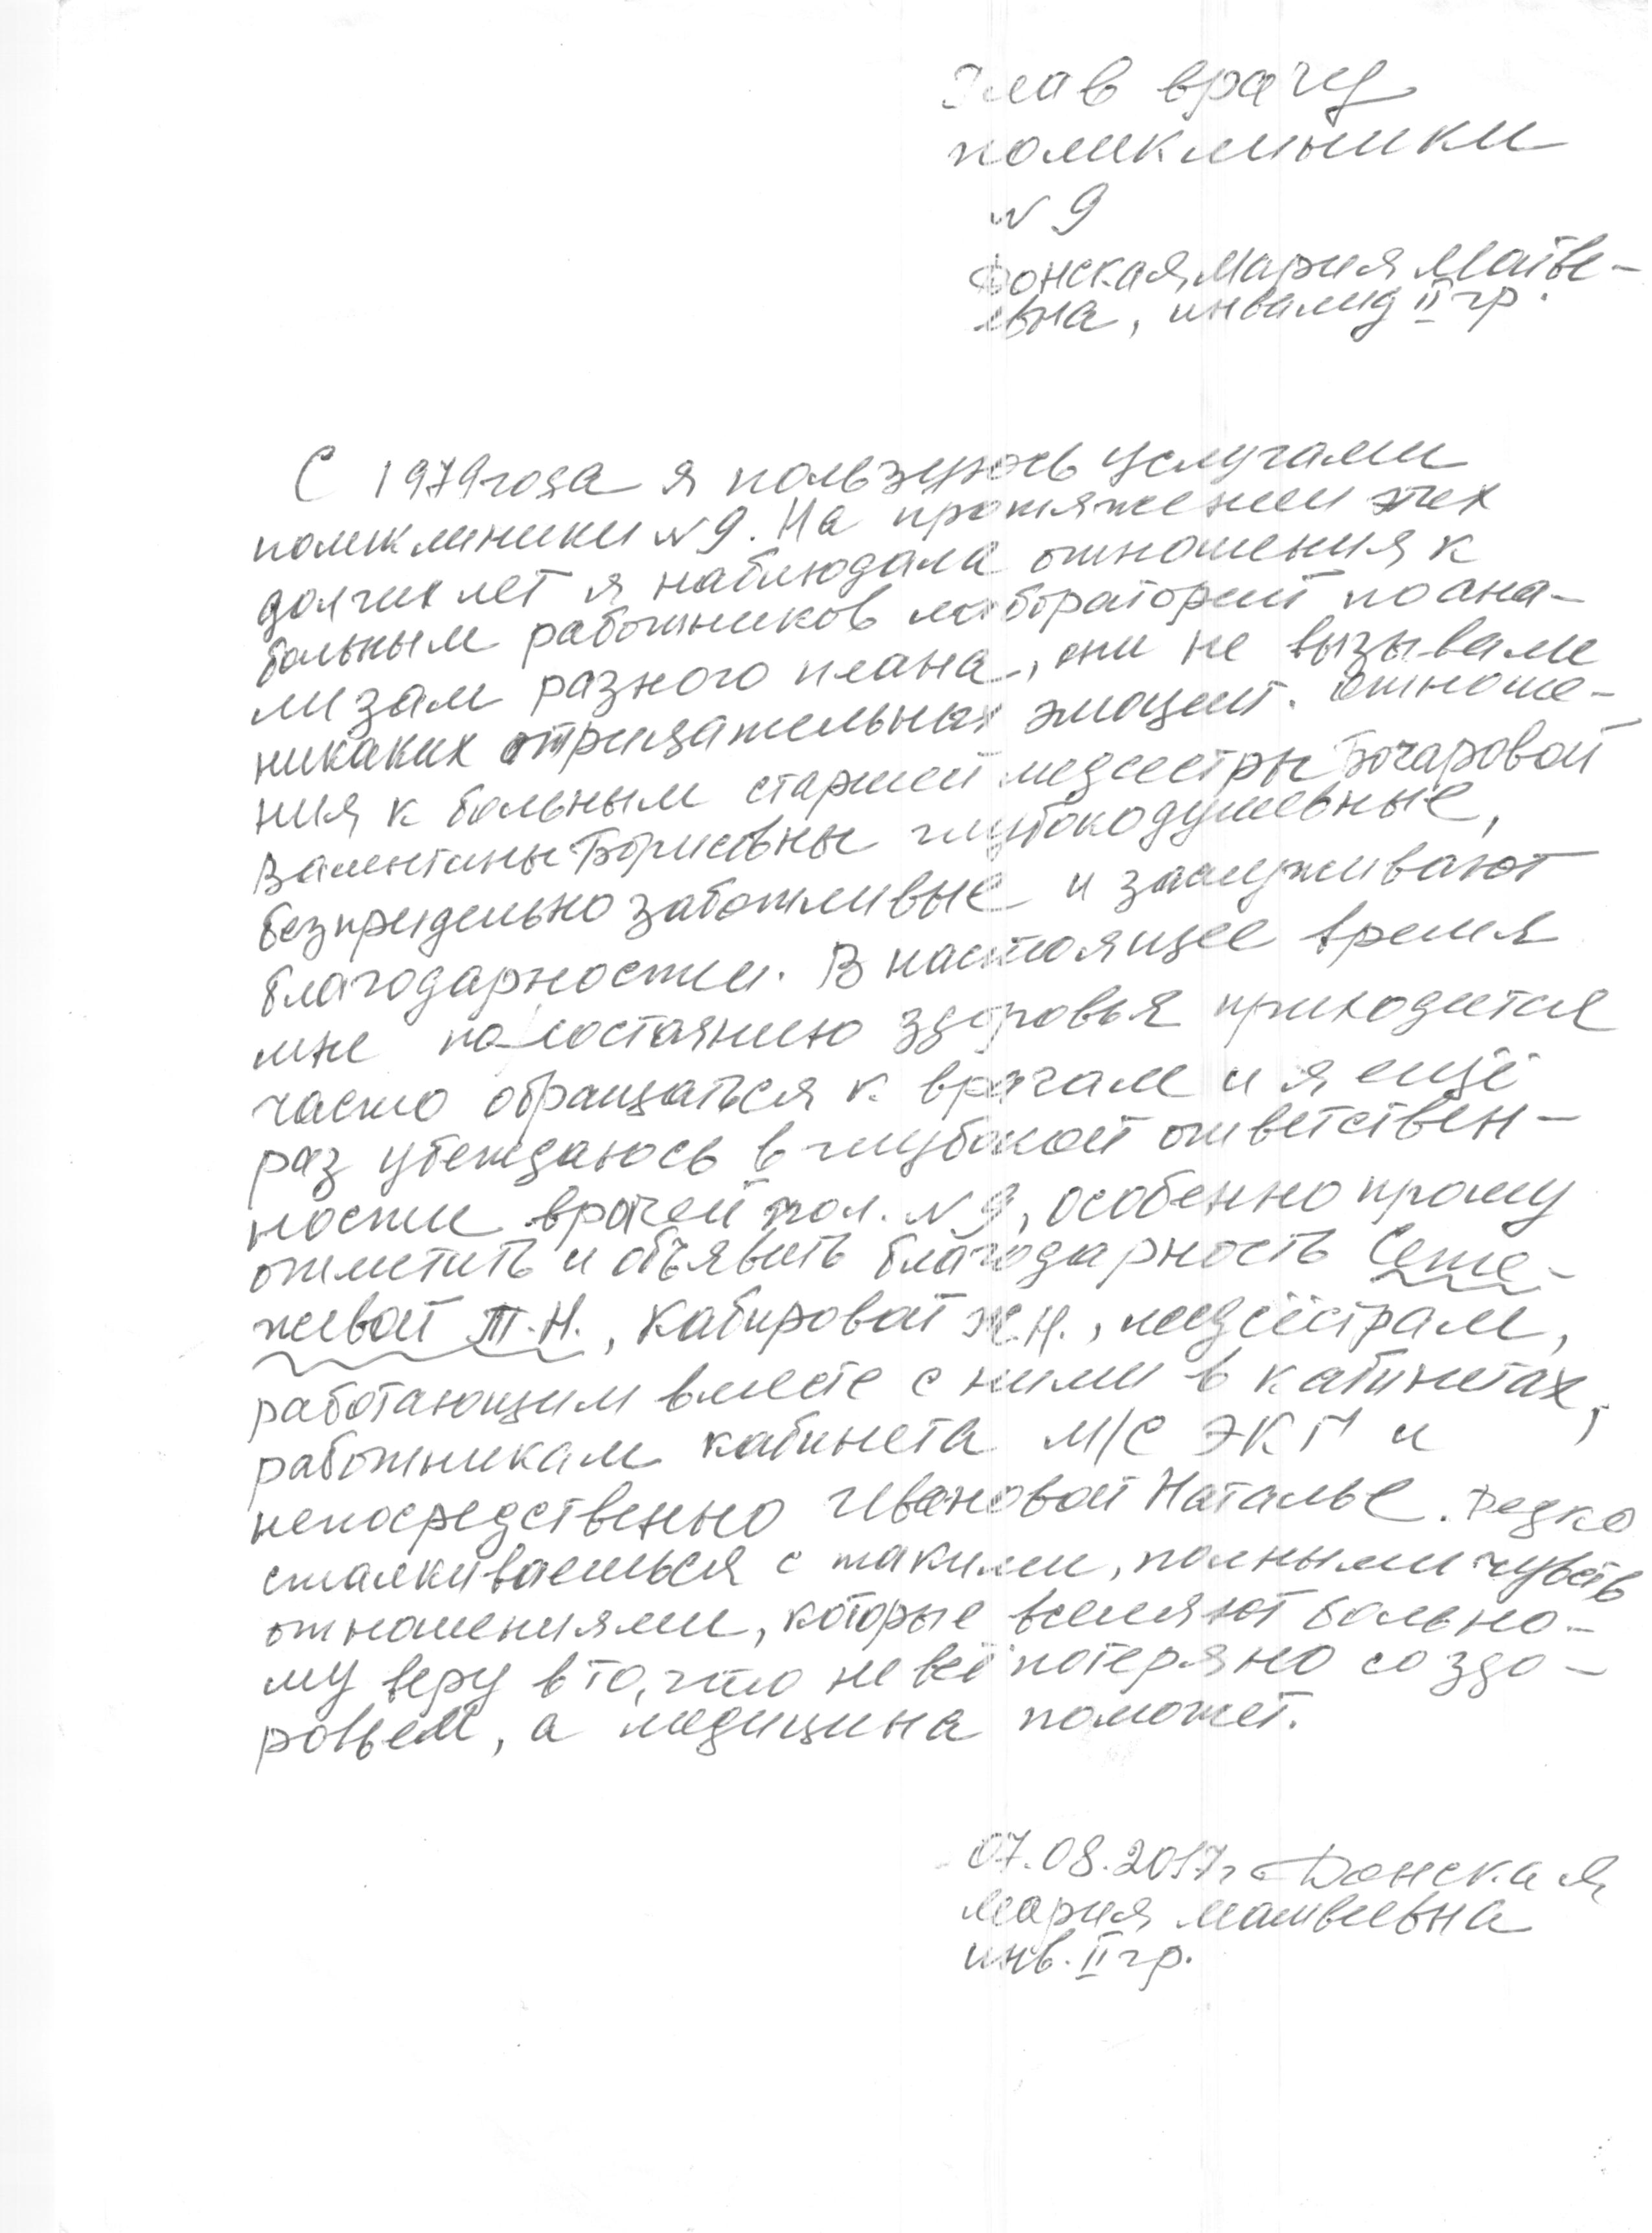 Глав врачу
поликлиники
N 9
Донская Мария Матве-
евна, инвалид II гр.
С 1979 года я пользуюсь услугами
поликлиники N 9. На протяжении этих
долгих лет я наблюдала отношения к
больным работников лабораторий по ана-
лизам разного плана, они не вызывали
никаких отрицательных эмоций. Отноше-
ния к больным старшей медсестры Бочаровой
Валентины Борисовны глубокодушевные,
безпредельно заботливые и заслуживают
благодарности. В настоящее время
мне по состоянию здоровья приходится
часто обращаться к врачам и я ещё
раз убеждаюсь в глубокой ответствен-
ности врачей пол. N 9, особенно прошу
отметить и объявить благодарность
Т.Н., Кабировой Ж.Н., медсёстрам,
работающим вместе с ними в кабинетах,
работникам кабинета м/с ЭКГ и
непосредственно Ивановой Наталье. Редко
сталкиваешься с такими, полными чувств
отношениями, которые вселяют больно-
му веру в то, что не всё потеряно со здо-
ровьем, а медицина поможет.
07.08.2017г Донская
Мария Матвеевна
инв. II гр.